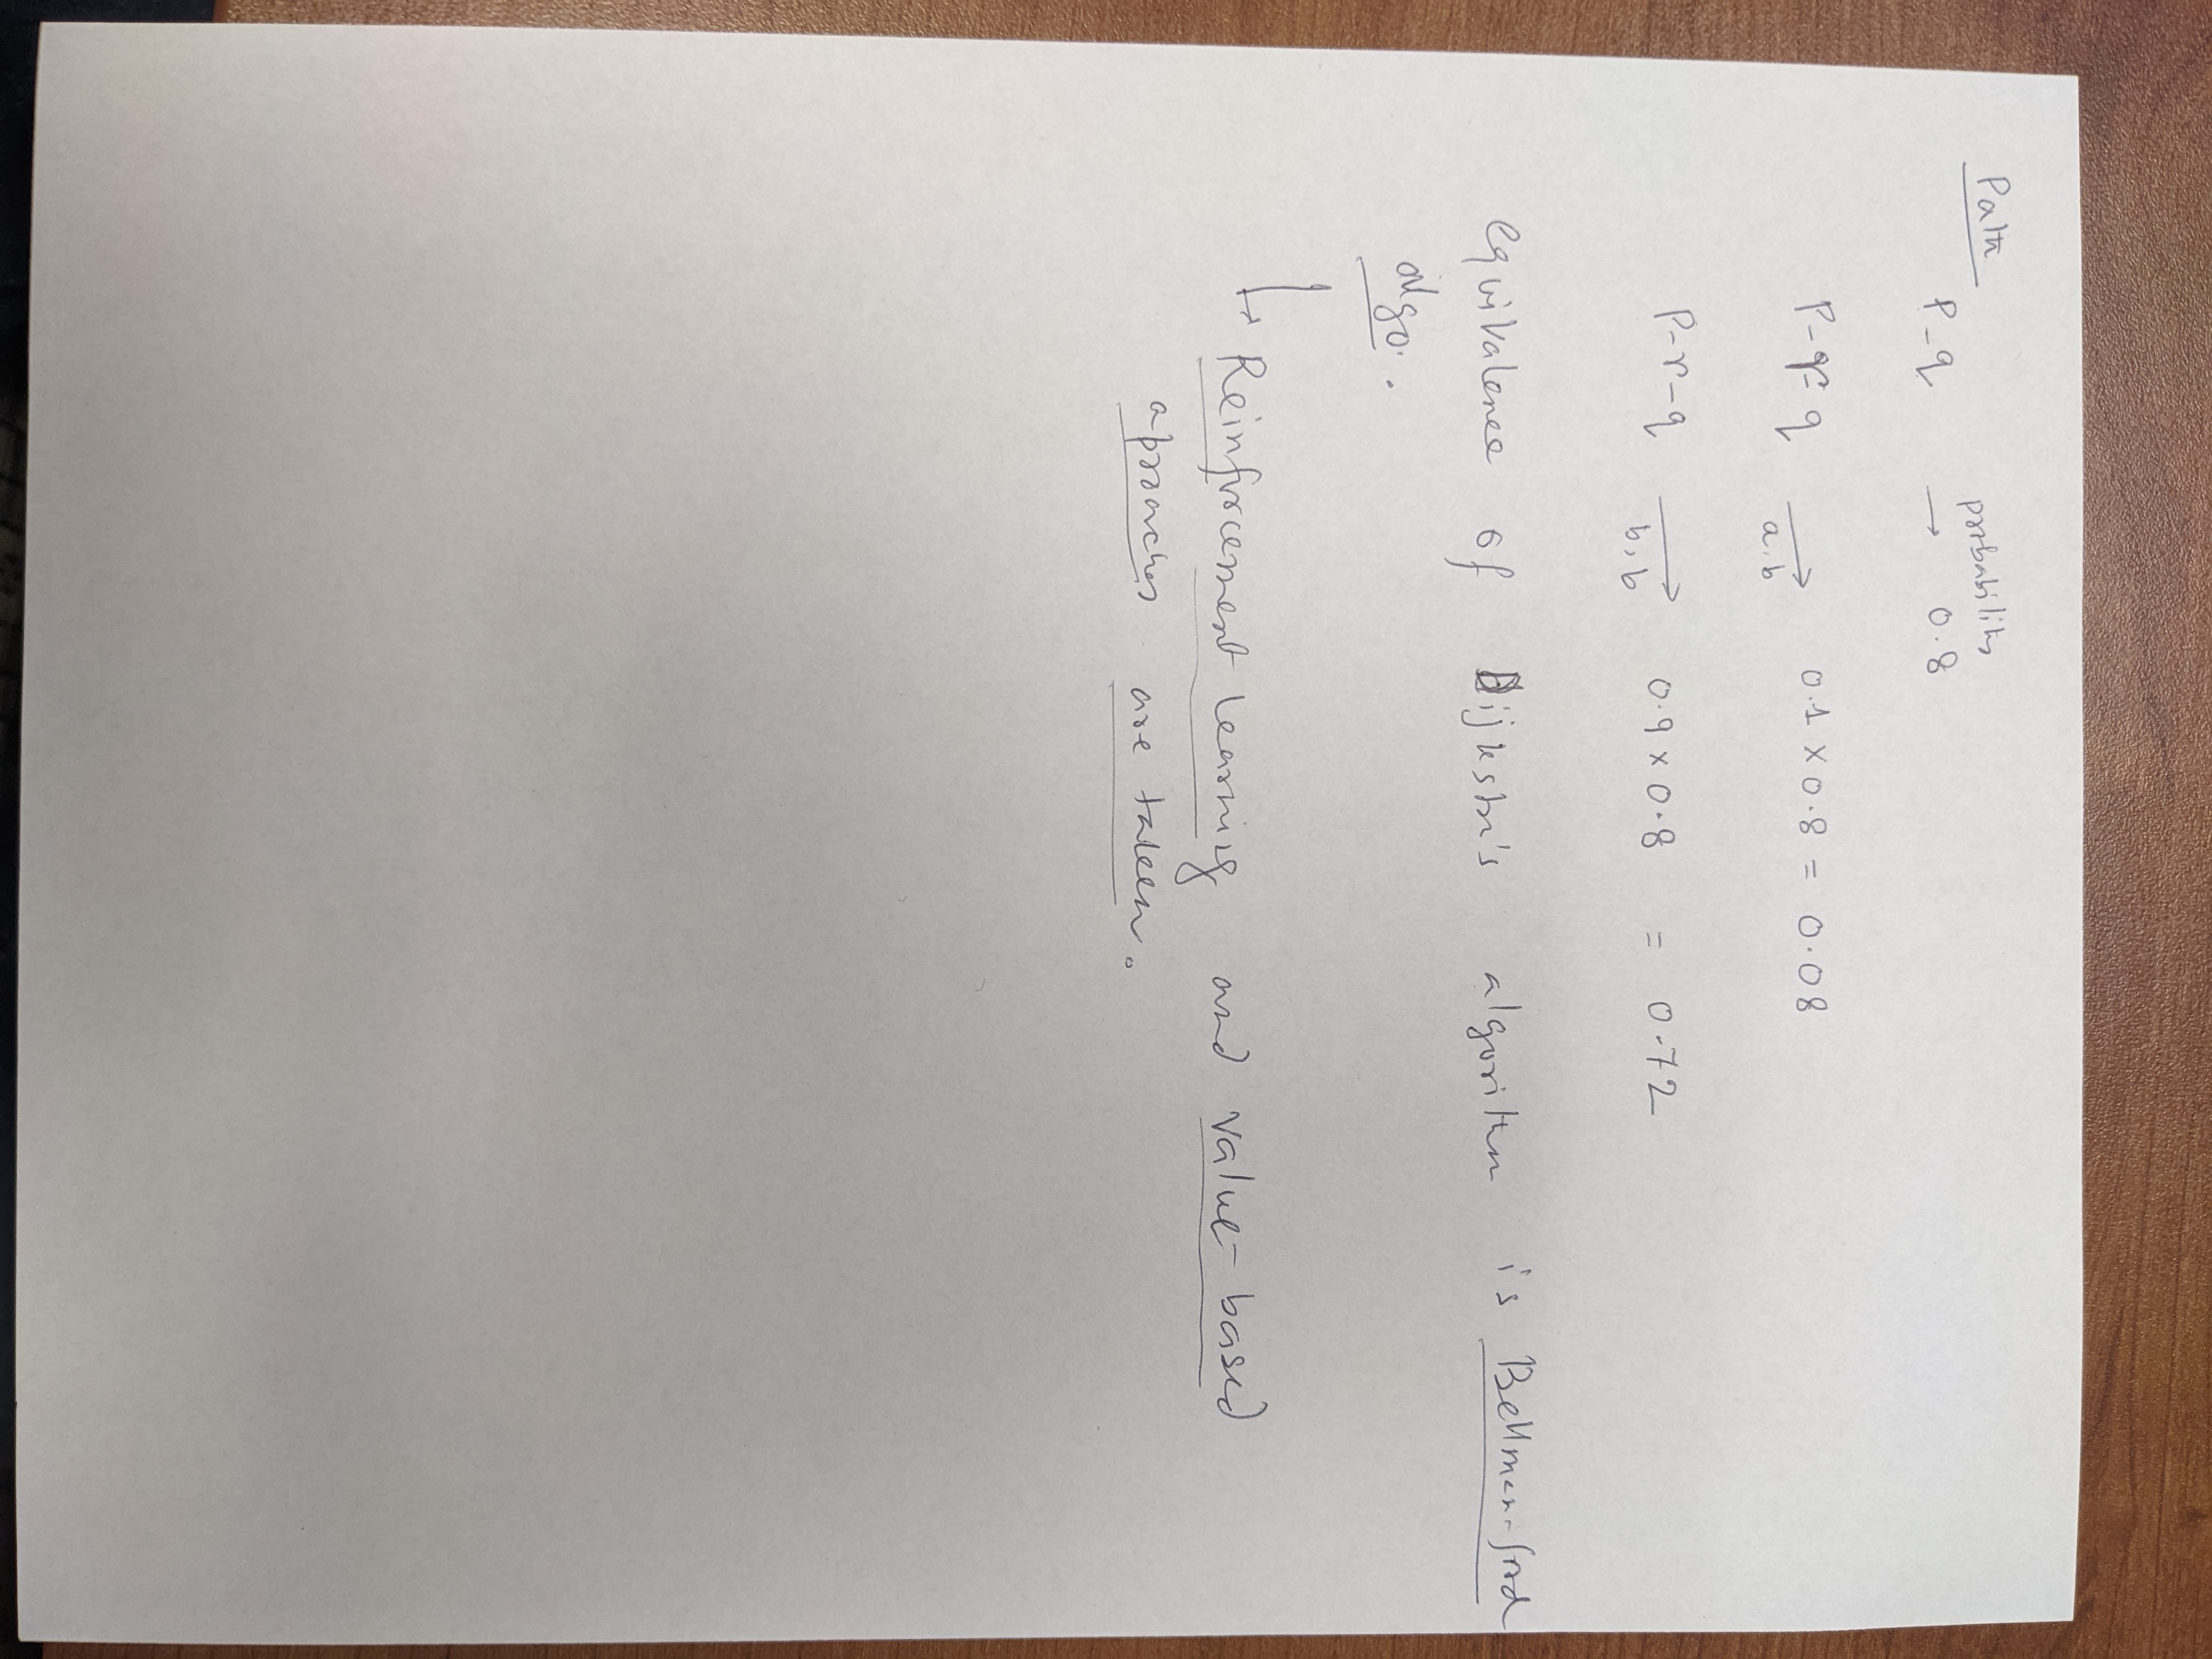 Path
probability
P-q → 0.8
P-q-q → 0.1 x 0.8 = 0.08
a, b
P-r-q → 0.9 x 0.8 = 0.72
b, b
equivalence of Dijkstr's algorithm is Bellman-ford
algo.
↳ Reinforcement learning and value-based
approaches are taken.